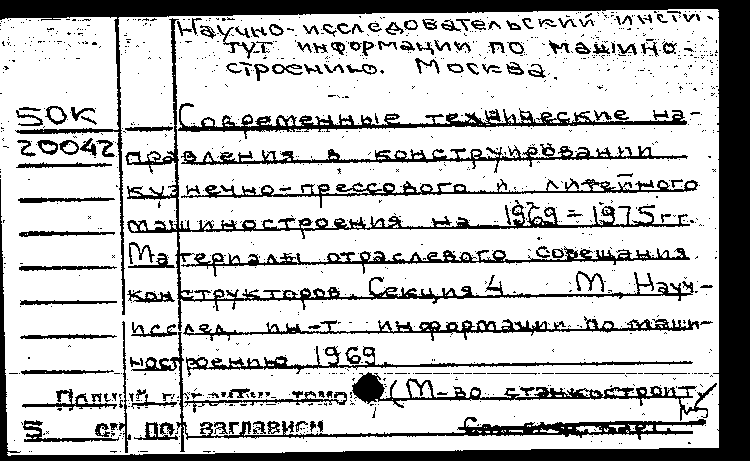 Научно-исследовательский инсти-
тут информации по машино-
строению. Москва.
50К Современные технические на-
20042 правления в конструировании
кузнечно-прессового и литейного
машиностроения на 1969-1975 гг.
Материалы отраслевого совещания
конструкторов. Секция 4. М., Науч-
исслед. ин-т информации по маши-
ностроению, 1969.
(М-во станкостроит.
см. под заглавием См. след. карт.